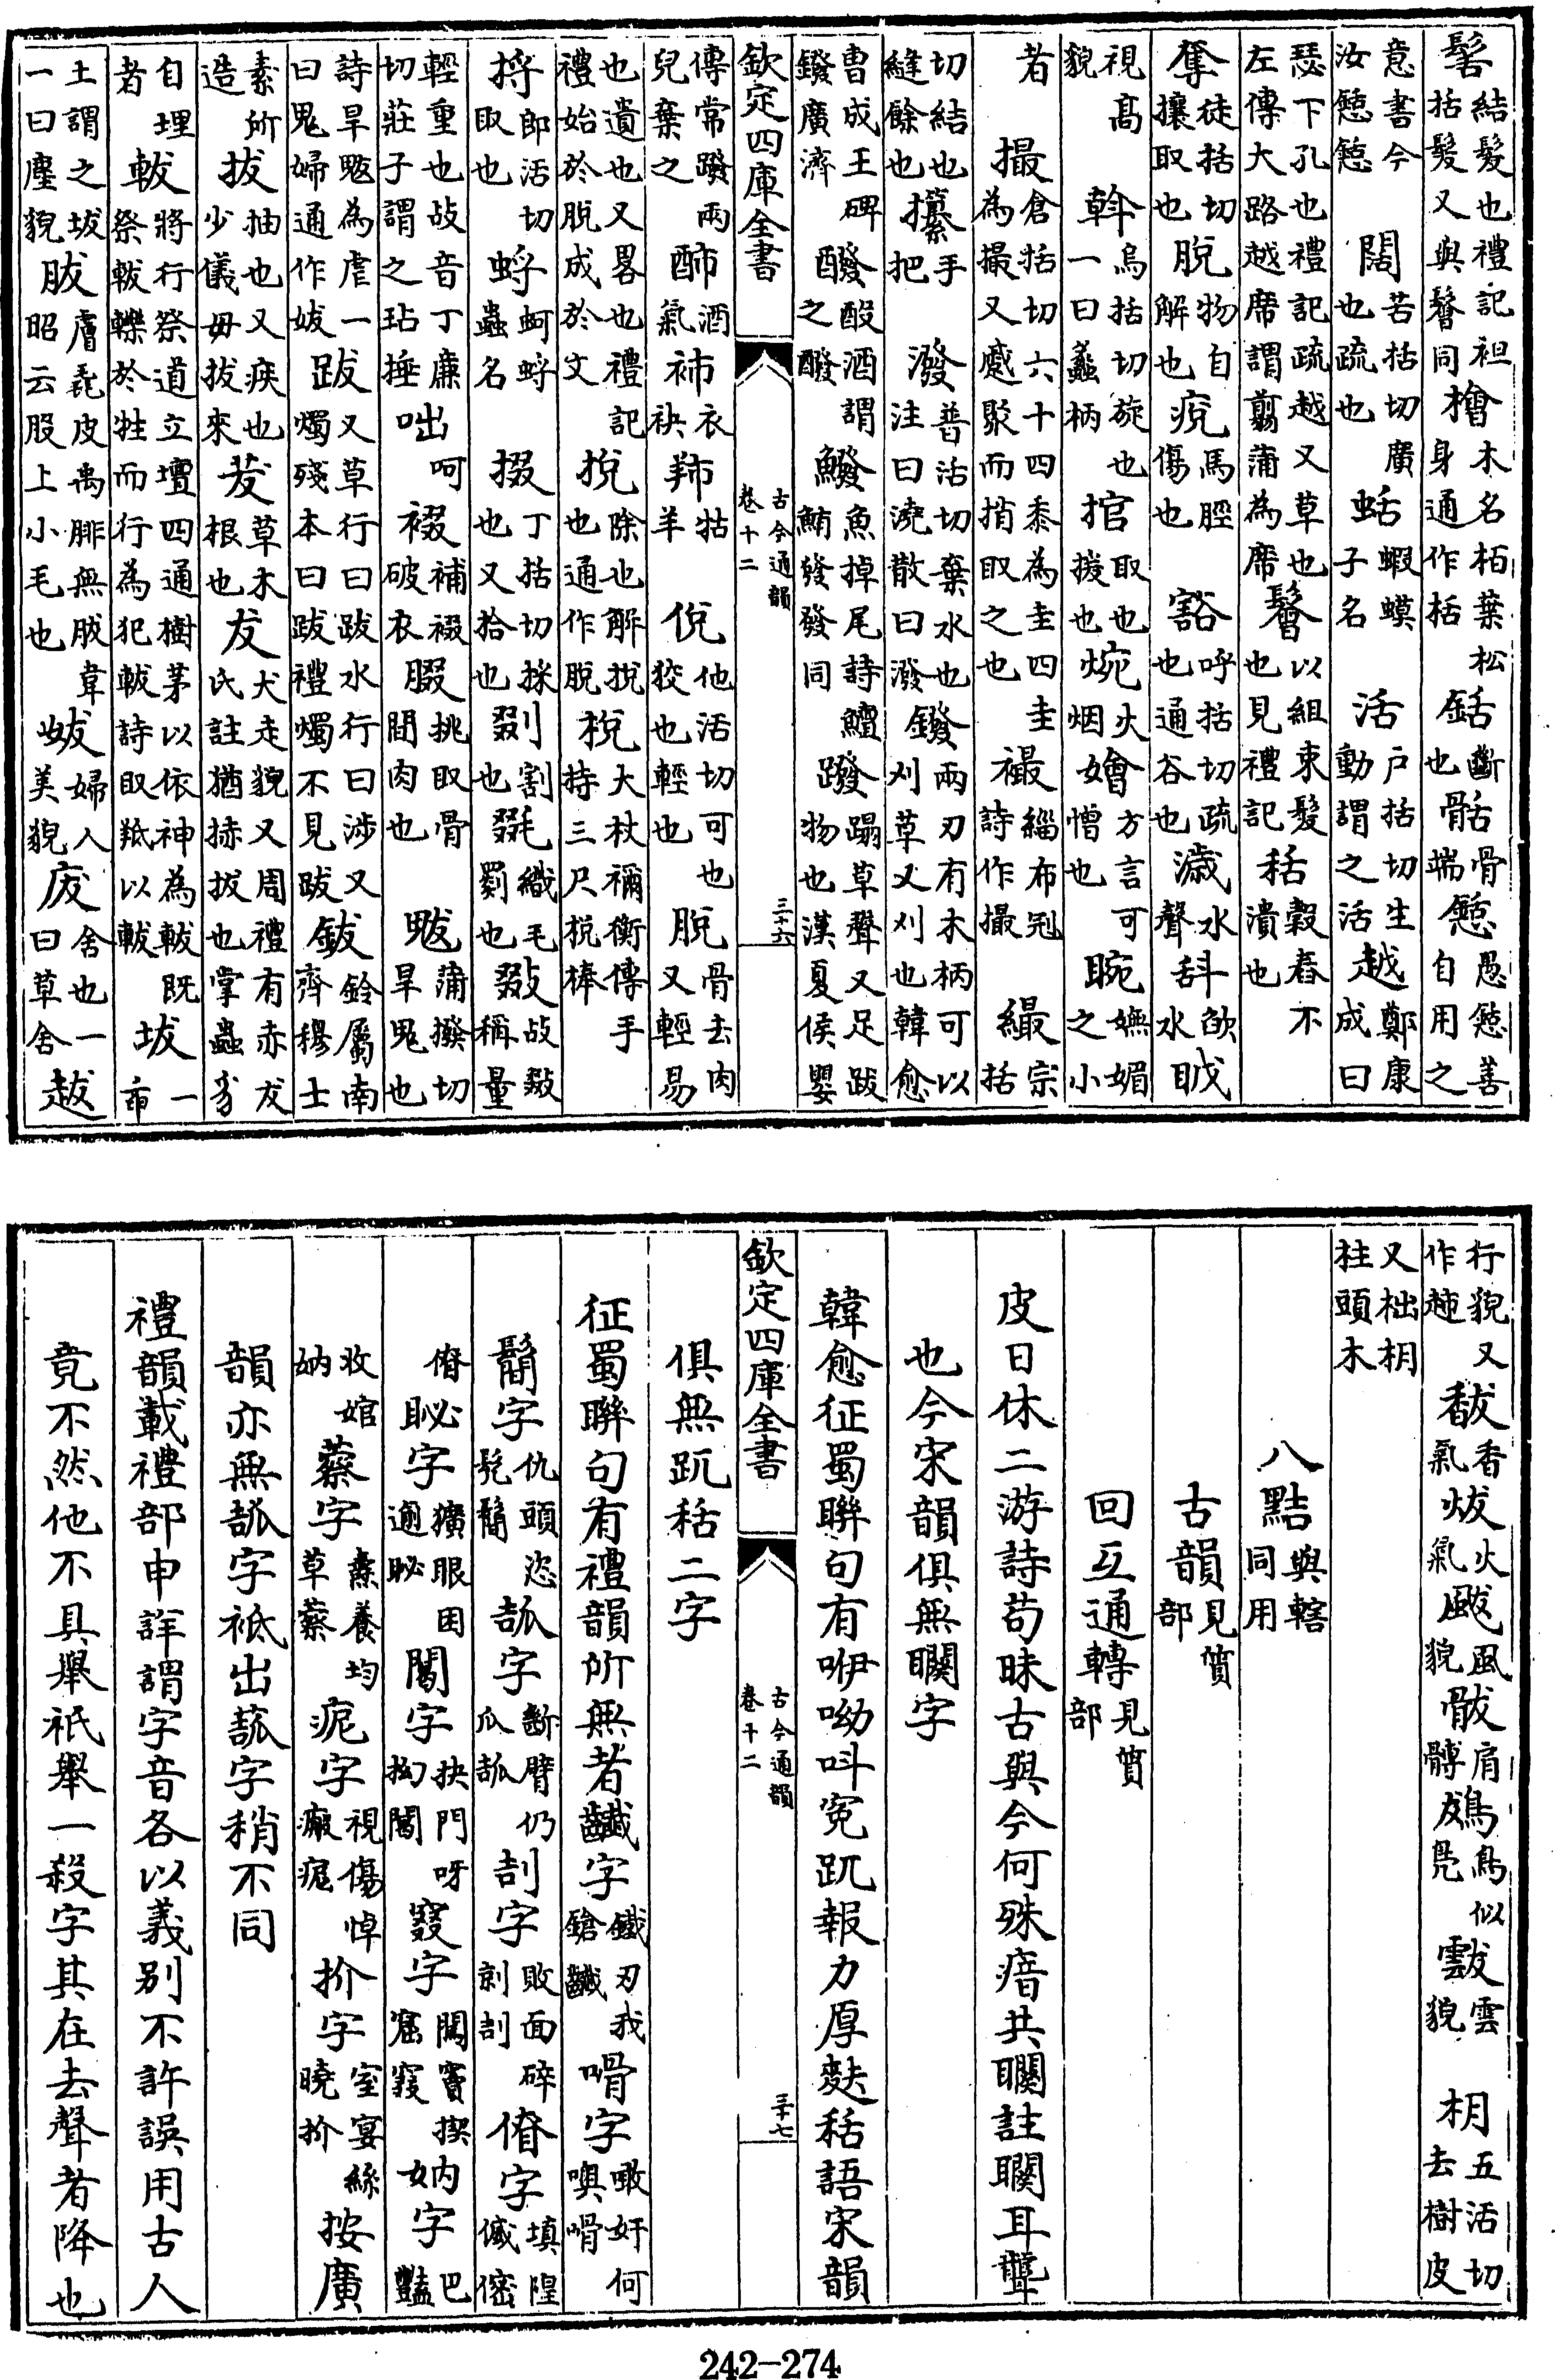 髺結髮也禮記袒括髮又與鬠同檜木名栢葉松身通作栝銛斷也骷骨端懖愚懖善自用之
意書今汝懖懖闊苦括切廣也疏也蛞蝦蟆子名活戶括切生動謂之活越鄭康成曰
瑟下孔也禮記疏越又草也左傳大路越席謂翦蒲為席鬠以組束髮也見禮記秳穀舂不潰也
奪徒括切攘取也脫物自解也痥馬脛傷也豁呼括切疏也通谷也濊水聲㪁欲水眓
視高貌斡烏括切旋也一曰蠡柄捾取也援也焥火烟嬒方言可憎也睕嫵媚之小
者撮倉括切六十四黍為圭四圭為撮又蹙聚而捎取之也襊緇布冠詩作撮繓宗括
切結也縫餘也攥手把潑普活切棄水也注曰澆散曰潑鏺兩刃有木柄可以刈草又刈也韓愈
曹成王碑鏺廣濟醱酘酒謂之醱鱍魚掉尾詩鱣鮪發發同蹳蹋草聲又足跋物也漢夏侯嬰
欽定四庫全書 古今通韻 卷十二 三十六
傳常蹳兩兒棄之䣪酒氣䄶衣袂𦍧牯羊侻他活切可也狡也輕也脫骨去肉又輕易
也遺也又畧也禮記禮始於脫成於文挩除也解挩也通作脫梲大杖禰衡傳手持三尺梲棒
捋郎活切取也蛶蚵蛶蟲名掇丁括切採也又拾也剟割也毲織毛罽也敠敁敠稱量
輕重也敁音丁廉切莊子謂之玷捶咄呵裰補裰破衣腏挑取骨間肉也魃蒲撥切旱鬼也
詩旱魃為虐一曰鬼婦通作妭跋又草行曰跋水行曰涉又燭殘本曰跋禮燭不見跋鈸鈴屬南齊穆士
素所造拔抽也又疾也少儀毋拔來茇草木根也犮犬走貌又周禮有赤犮氏註猶捇拔也掌蟲豸
自埋者軷將行祭道立壇四通樹茅以依神為軷既祭軷轢於牲而行為犯軷詩取羝以軷坺一臿
土謂之坺一曰塵貌胈膚毳皮禹腓無胈韋昭云股上小毛也妭婦人美貌废舍也一曰草舍越
行貌又作䟦馛香氣炦火氣颰風貌骳肩髆鵖鳥似鳧䨰雲貌枂五活切去樹皮
又柮枂柱頭木
八黠與轄同用
古韻見質部
回互通轉見質部
皮日休二游詩苟昧古與今何殊瘖共䦧註䦧耳聾
也今宋韻俱無䦧字
韓愈征蜀聯句有咿呦叫寃趴報力厚麩秳語宋韻
欽定四庫全書 古今通韻 卷十二 三十七
俱無趴秳二字
征蜀聯句有禮韻所無者䶪字鐵刃我鎗䶪㗕字噉奸何噢㗕
鬜字仇頭恣髡鬜㼋字斷臂仍瓜㼋刮字敗面碎剠刮傄字填隍傶傄
𥅾字獷眼困逾𥅾䦪字抉門呀拗䦪窡字闖竇揳窟窡妠字巴豔
收婠妠蔡字熹養均草蔡痆字視傷悼瘢痆扴字室宴絲曉扴按廣
韻亦無㼋字祗出㼋字稍不同
禮韻載禮部申詳謂字音各以義別不許誤用古人
竟不然他不具舉祇舉一殺字其在去聲者降也
242-274